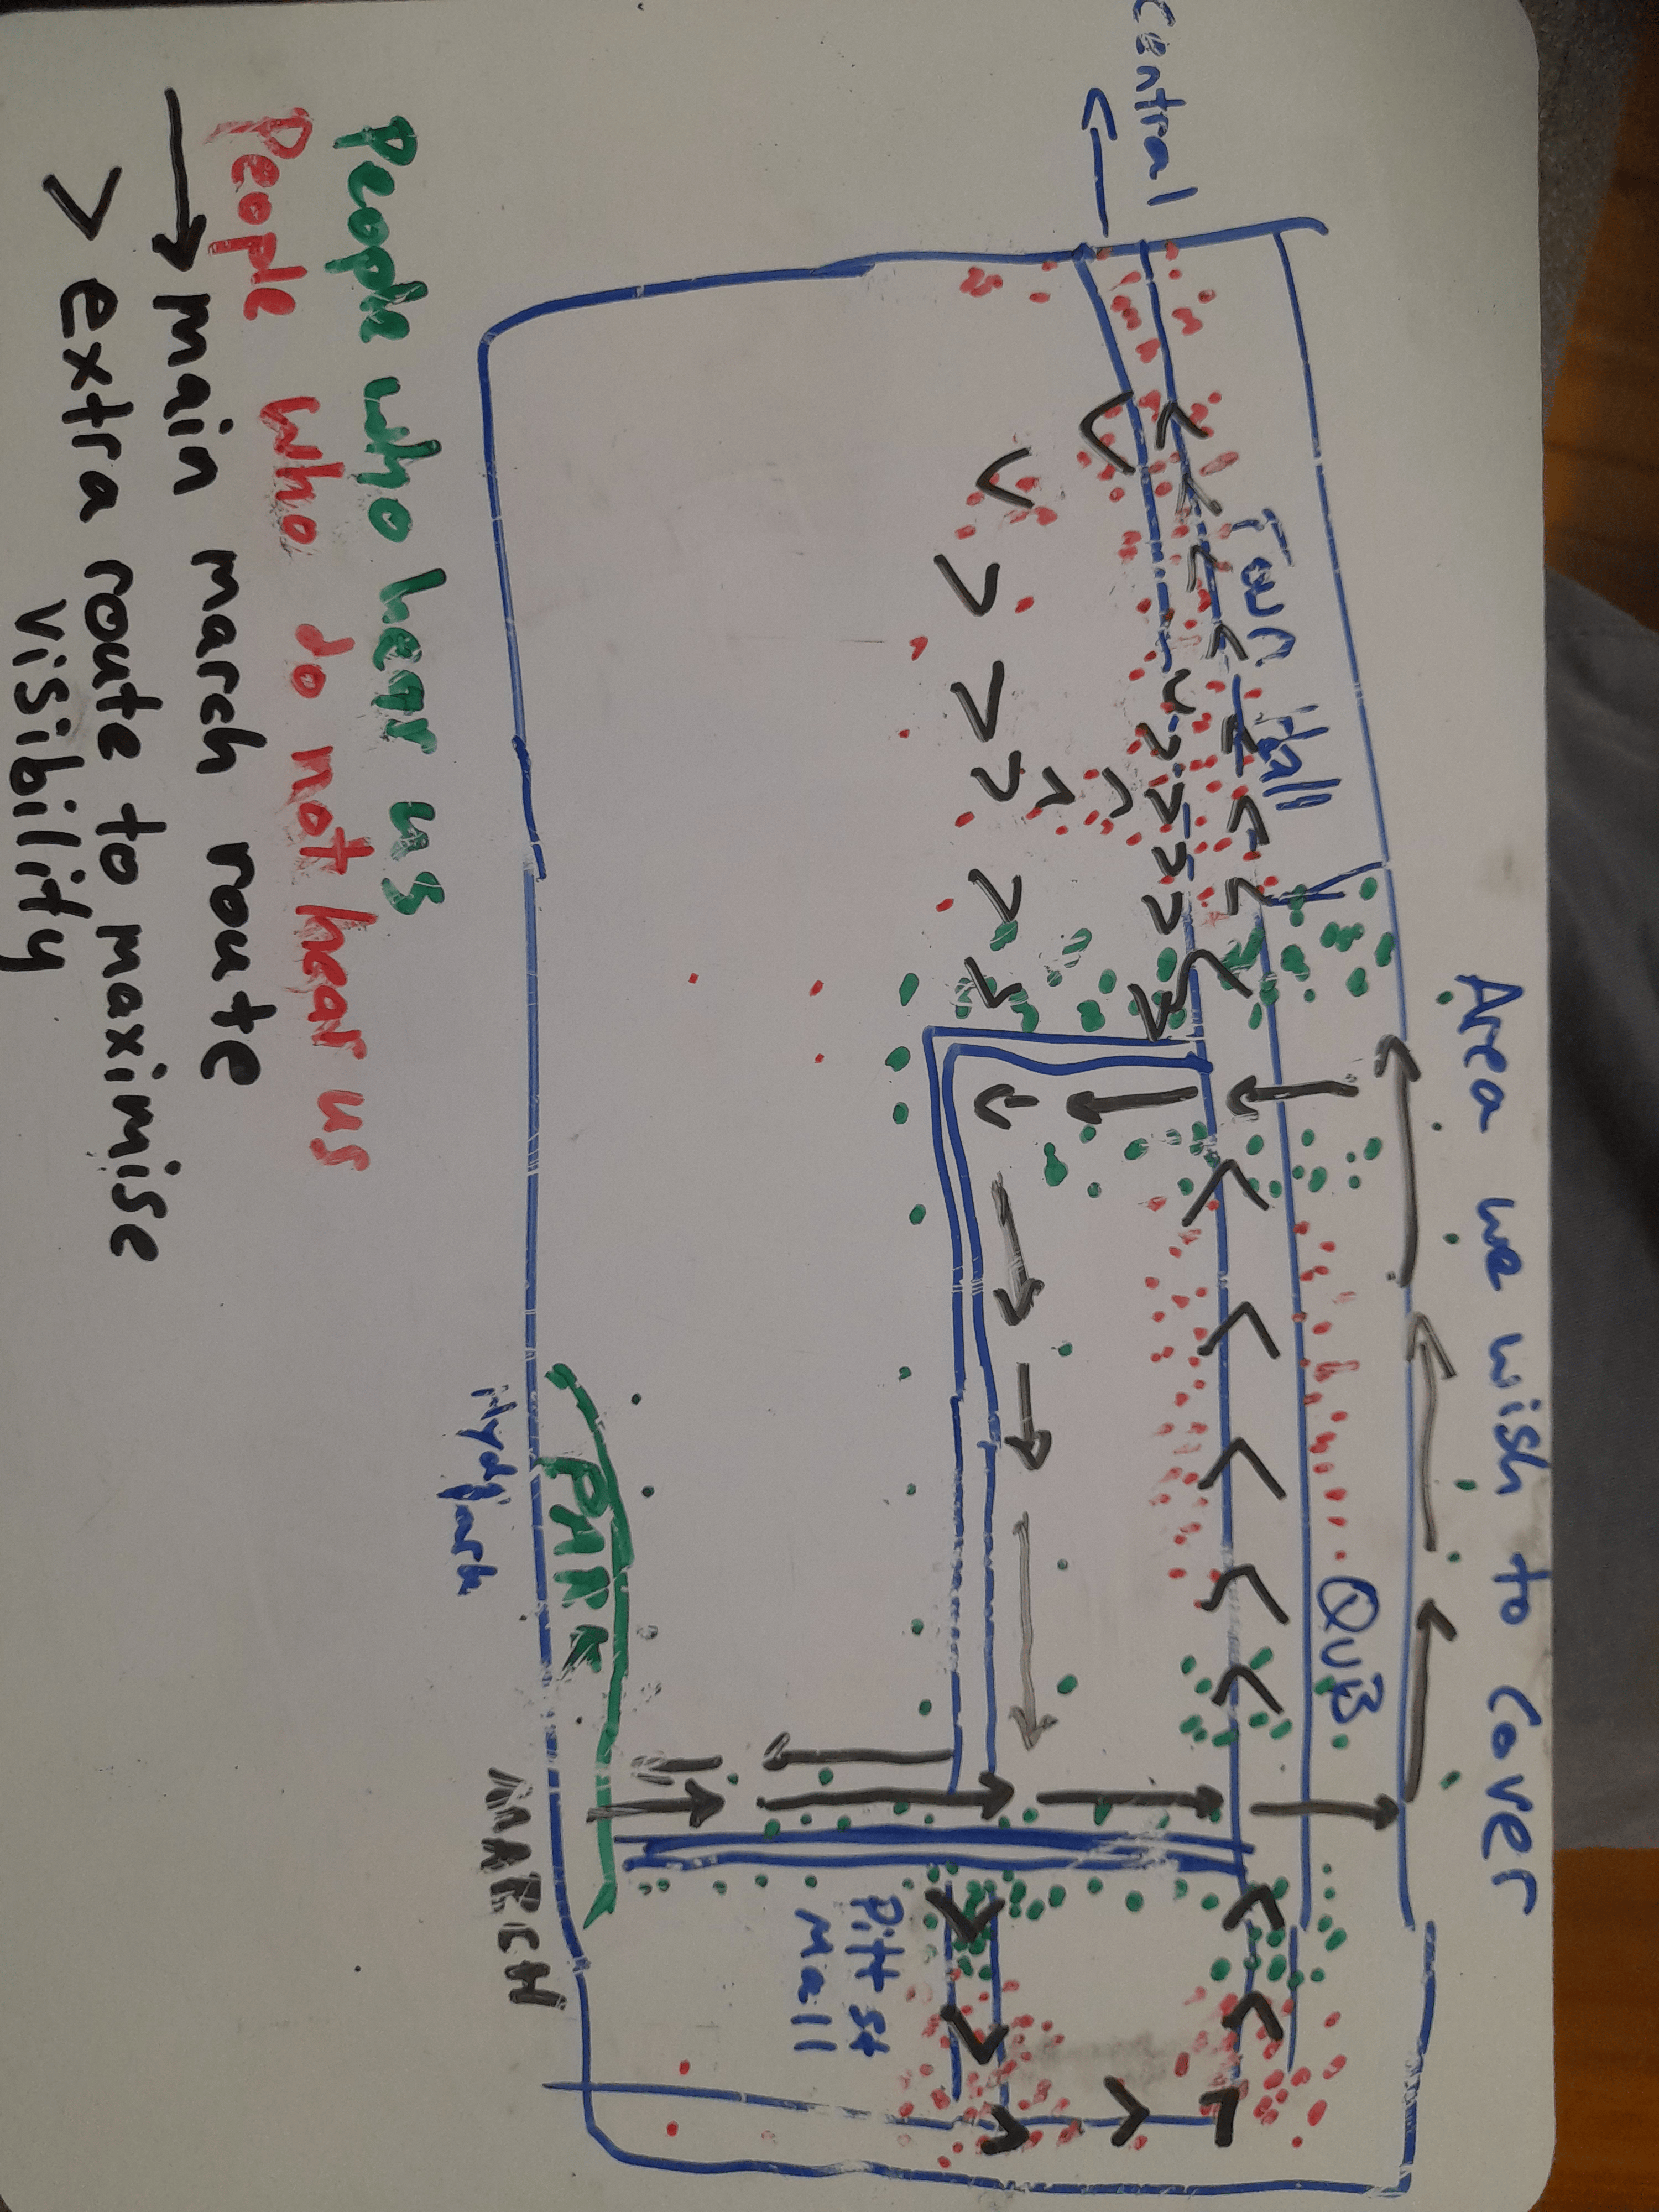 Area we wish to cover
Central
Town Hall
QVB
Pitt st
Mall
PARK
Hyde Park
MARCH
People who hear us
People who do not hear us
→ main march route
> extra route to maximise
visibility